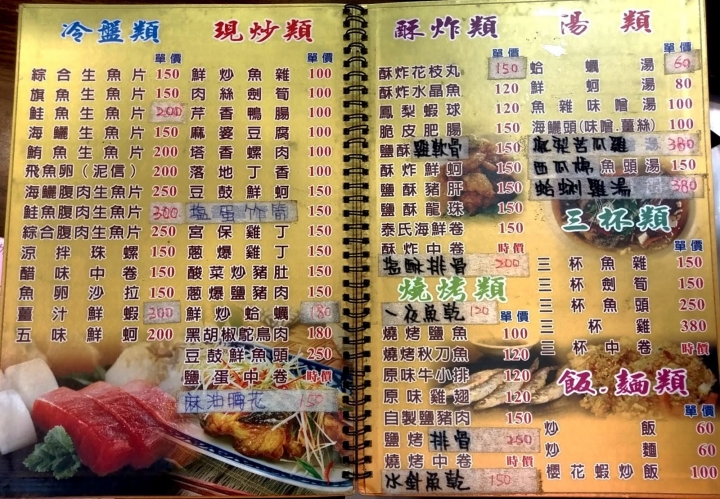 冷盤類
單價
綜合生魚片 150
旗魚生魚片 150
鮭魚生魚片 200
海鱺生魚片 150
鮪魚生魚片 200
飛魚卵(泥信) 200
海鱺腹肉生魚片 250
鮭魚腹肉生魚片 300
綜合腹肉生魚片 250
涼拌珠螺 150
醋味中卷 150
魚卵沙拉 150
薑汁鮮蝦 200
五味鮮蚵 200
現炒類
單價
鮮炒魚雜 100
肉絲劍筍 100
芹香鴨腸 100
麻婆豆腐 100
塔香螺肉 100
落地丁香 100
豆鼓鮮蚵 150
塩蛋炸筒 150
宮保雞丁 150
蔥爆雞丁 150
酸菜炒豬肚 150
蔥爆鹽豬肉 150
鮮炒蛤蠣 180
黑胡椒鴕鳥肉 180
豆鼓鮮魚頭 250
鹽蛋中卷 時價
麻油腰花 150
酥炸類
單價
酥炸花枝丸 150
酥炸水晶魚 120
鳳梨蝦球 120
脆皮肥腸 150
鹽酥雞軟骨 150
酥炸鮮蚵 150
鹽酥豬肝 150
鹽酥龍珠 150
泰氏海鮮卷 150
酥炸中卷 時價
塩酥排骨 200
燒烤類
單價
一夜魚乾 120
燒烤鹽魚 100
燒烤秋刀魚 120
原味牛小排 120
原味雞翅 120
自製鹽豬肉 150
鹽烤排骨 250
燒烤中卷 時價
水針魚乾 150
湯類
單價
蛤蠣湯 60
鮮蚵湯 80
魚雜味噌湯 100
海鱺頭(味噌.薑絲) 100
苦瓜雞湯 380
西瓜棉魚頭湯 150
蛤蜊雞湯 380
三杯類
單價
三杯魚雜 150
三杯劍筍 150
三杯魚頭 250
三杯雞 380
三杯中卷 時價
飯.麵類
單價
炒飯 60
炒麵 60
櫻花蝦炒飯 100